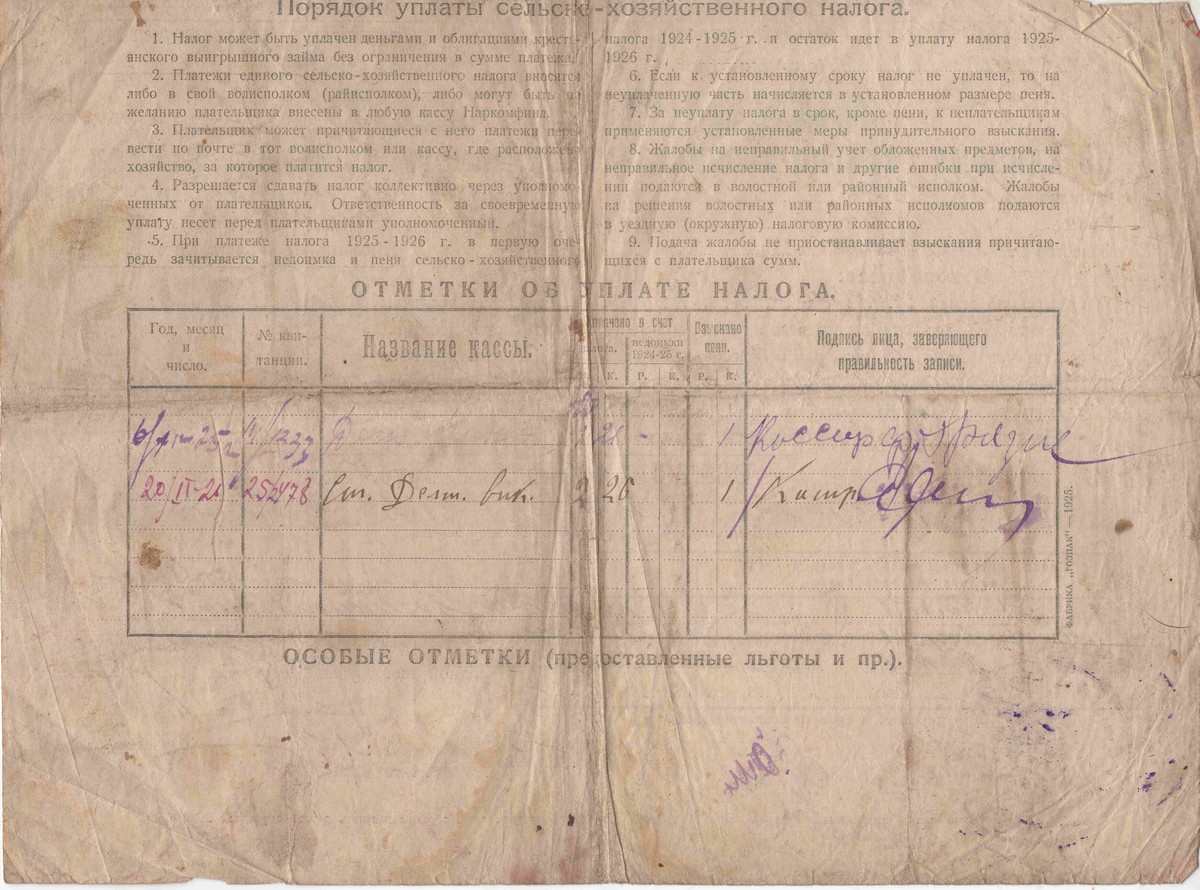 Порядок уплаты сельско-хозяйственного налога.
1. Налог может быть уплачен деньгами и облигациями кресть-
янского выигрышного займа без ограничения в сумме платежа.
2. Платежи единого сельско-хозяйственного налога вносятся
либо в свой волисполком (райисполком), либо могут быть по
желанию плательщика внесены в любую кассу Наркомфина.
3. Плательщик может причитающиеся с него платежи пере-
вести по почте в тот волисполком или кассу, где расположено
хозяйство, за которое платится налог.
4. Разрешается сдавать налог коллективно через уполномо-
ченных от плательщиков. Ответственность за своевременную
уплату несет перед плательщиками уполномоченный.
5. При платеже налога 1925-1926 г. в первую оче-
редь зачитывается недоимка и пеня сельско-хозяйственного
налога 1924-1925 г. и остаток идет в уплату налога 1925-
1926 г.
6. Если к установленному сроку налог не уплачен, то на
неуплаченную часть начисляется в установленном размере пеня.
7. За неуплату налога в срок, кроме пени, к неплательщикам
применяются установленные меры принудительного взыскания.
8. Жалобы на неправильный учет обложенных предметов, на
неправильное исчисление налога и другие ошибки при исчисле-
нии подаются в волостной или районный исполком. Жалобы
на решения волостных или районных исполкомов подаются
в уездную (окружную) налоговую комиссию.
9. Подача жалобы не приостанавливает взыскания причитаю-
щихся с плательщика сумм.
ОТМЕТКИ ОБ УПЛАТЕ НАЛОГА.
Год, месяц
и
число.
№ кви-
танции.
Название кассы.
Уплачено в счет
налога.
недоимки
1924-25 г.
Взыскано
пени.
Подпись лица, заверяющего
правильность записи.
к. р. к. р. к.
20/IV-26 252478 2 26 1
ФАБРИКА „ГОЗНАК" — 1925.
ОСОБЫЕ ОТМЕТКИ (предоставленные льготы и пр.).